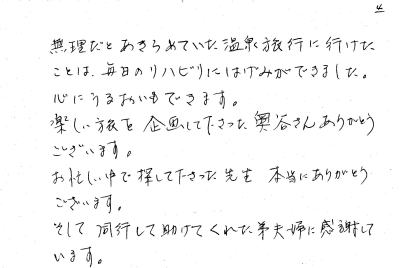 4
無理だとあきらめていた温泉旅行に行けた
ことは、毎日のリハビリにはげみができました。
心にうるおいもできます。
楽しい旅を企画して下さった奥谷さんありがとう
ございます。
お忙しい中で探して下さった先生 本当にありがとう
ございます。
そして同行して助けてくれた弟夫婦に感謝して
います。